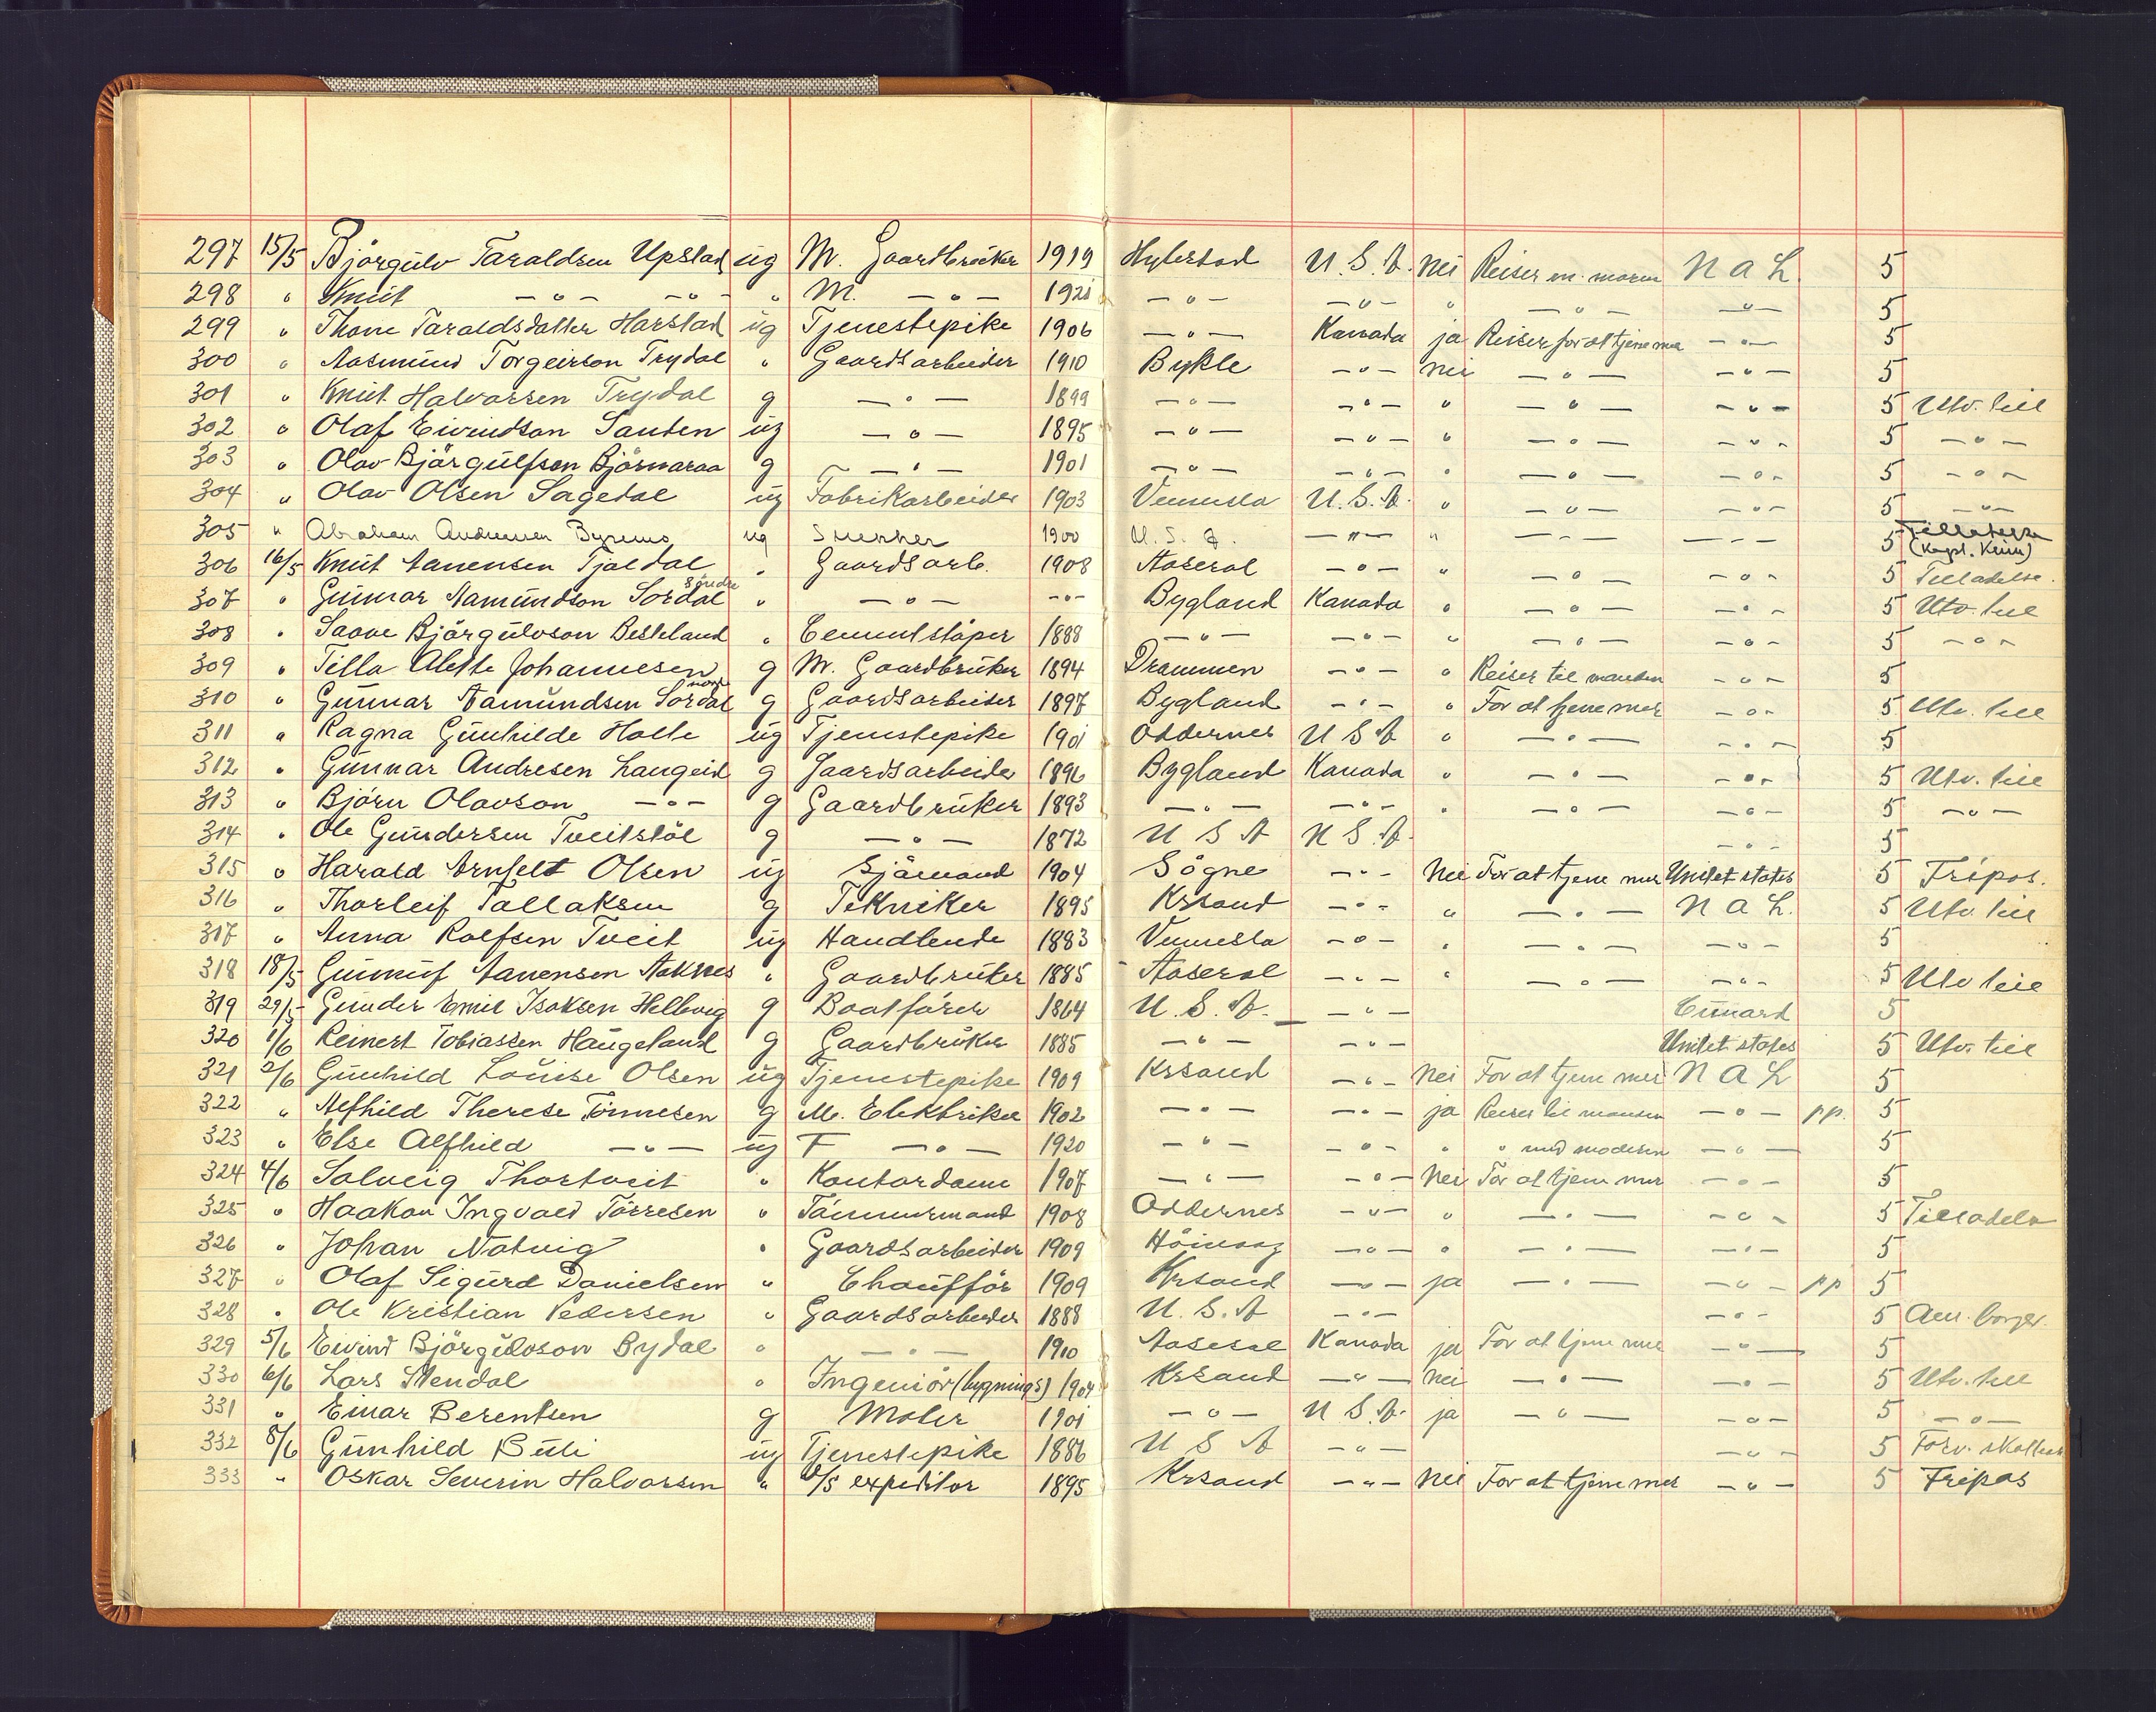 297 15/5 Björgulv Taraldsen Upstad ug M. Gaardbruker 1919 Hylestad U.S.A. Nei Reiser m. moren N A L 5
298 " Knut — " — — " — " M. — " — 1921 — " — — " — " — " — — " — 5
299 " Thone Taraldsdatter Harstad ug Tjenestepike 1906 — " — Kanada ja Reiser for at tjene mer — " — 5
300 " Aasmund Torgeirson Trydal " Gaardsarbeider 1910 Bykle — " — Nei — " — — " — 5
301 " Knut Halvorsen Trydal g — " — 1899 — " — — " — " — " — — " — 5 Utv. till
302 " Olaf Eivindson Santen ug — " — 1895 — " — — " — " — " — — " — 5 — " —
303 " Olav Björgulfsen Björnaraa g — " — 1901 — " — — " — " — " — — " — 5 — " —
304 " Olav Olsen Sagedal ug Fabrikarbeider 1903 Vennesla U.S.A. " — " — — " — 5 — " —
305 " Abraham Andreasen Byremo ug Snekker 1900 U.S.A. — " — " — " — — " — 5 Tilladelse (Kapt. Keim)
306 16/5 Knut Aanensen Tjaldal " Gaardsarb. 1908 Aaseral — " — " — " — — " — 5 Tilladelse.
307 " Gunnar Aamundson Sordal Söndre " — " — — " — Bygland Kanada " — " — — " — 5 Utv. till
308 " Saave Björgulvson Besteland " Cementstöper 1888 — " — — " — " — " — — " — 5 — " —
309 " Tilla Alette Johannesen g M. Gaardbruker 1894 Drammen — " — " Reiser til manden — " — 5
310 " Gunnar Aamundsen Sordal nord g Gaardsarbeider 1897 Bygland — " — " For at tjene mer — " — 5 Utv. till
311 " Ragna Gunhilde Holte ug Tjenestepike 1901 Oddernes U S A " — " — — " — 5
312 " Gunnar Andresen Langeid g Gaardsarbeider 1896 Bygland Kanada " — " — — " — 5 Utv. till
313 " Björn Olavson — " — g Gaardbruker 1893 — " — — " — " — " — — " — 5 — " —
314 " Ole Gundersen Tveitstöl g — " — 1872 U S A U S A. — " — 5
315 " Harald Arnfelt Olsen ug Sjömand 1904 Sögne — " — Nei For at tjene mer Unitet states 5 Fripas.
316 " Thorleif Tallaksen g Tekniker 1895 Krsand — " — " — " — N A L. 5 Utv. till
317 " Anna Rolfsen Tveit ug Handlende 1883 Vennesla — " — " — " — — " — 5
318 18/5 Gunnuf Aanensen Aaknes " Gaardbruker 1885 Aaseral — " — " — " — — " — 5 Utv till
319 29/5 Gunder Emil Isaksen Hellevig g Baatförer 1864 U.S.A. — " — Cunard 5
320 1/6 Reinert Tobiassen Haugeland g Gaardbruker 1885 — " — — " — Unitet states 5 Utv. till
321 2/6 Gunhild Louise Olsen ug Tjenestepike 1909 Krsand — " — Nei For at tjene mer N A L 5
322 " Alfhild Therese Tönnesen g M. Elektriker 1902 — " — — " — ja Reiser til manden — " — pp. 5
323 " Else Alfhild — " — ug F — " — 1920 — " — — " — " " med moderen — " — 5
324 4/6 Solveig Thortveit " Kontordame 1907 — " — — " — Nei For at tjene mer — " — 5
325 " Haakon Ingvald Törresen " Tömmermand 1908 Oddernes — " — " — " — — " — 5 Tilladels
326 " Johan Natvig " Gaardsarbeider 1909 Höivaag — " — " — " — — " — 5
327 " Olaf Sigurd Danielsen " Chaufför 1909 Krsand — " — ja — " — — " — pp 5
328 " Ole Kristian Pedersen " Gaardsarbeider 1888 U.S.A — " — — " — 5 Am. borger.
329 5/6 Eivind Björgulvson Bydal " — " — 1910 Aaseral Kanada ja For at tjene mer — " — 5
330 6/6 Lars Stendal " Ingeniör (bygnings) 1904 Krsand — " — Nei — " — — " — 5 Utv. till
331 " Einar Berentsen g Maler 1901 — " — U S A. ja — " — — " — 5 — " —
332 8/6 Gunhild Buli ug Tjenestepike 1886 U S A — " — — " — 5 Forv. skattes
333 " Oskar Severin Halvorsen " D/S expeditör 1895 Krsand — " — Nei For at tjene mer — " — 5 Fripas